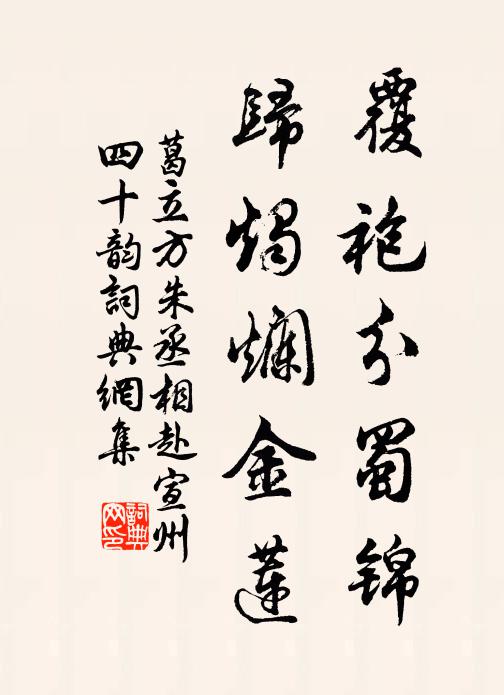 覆袍分蜀錦
歸燭爛金蓮
葛立方朱丞相赴宣州
四十韵詞典網集
詞典
网印